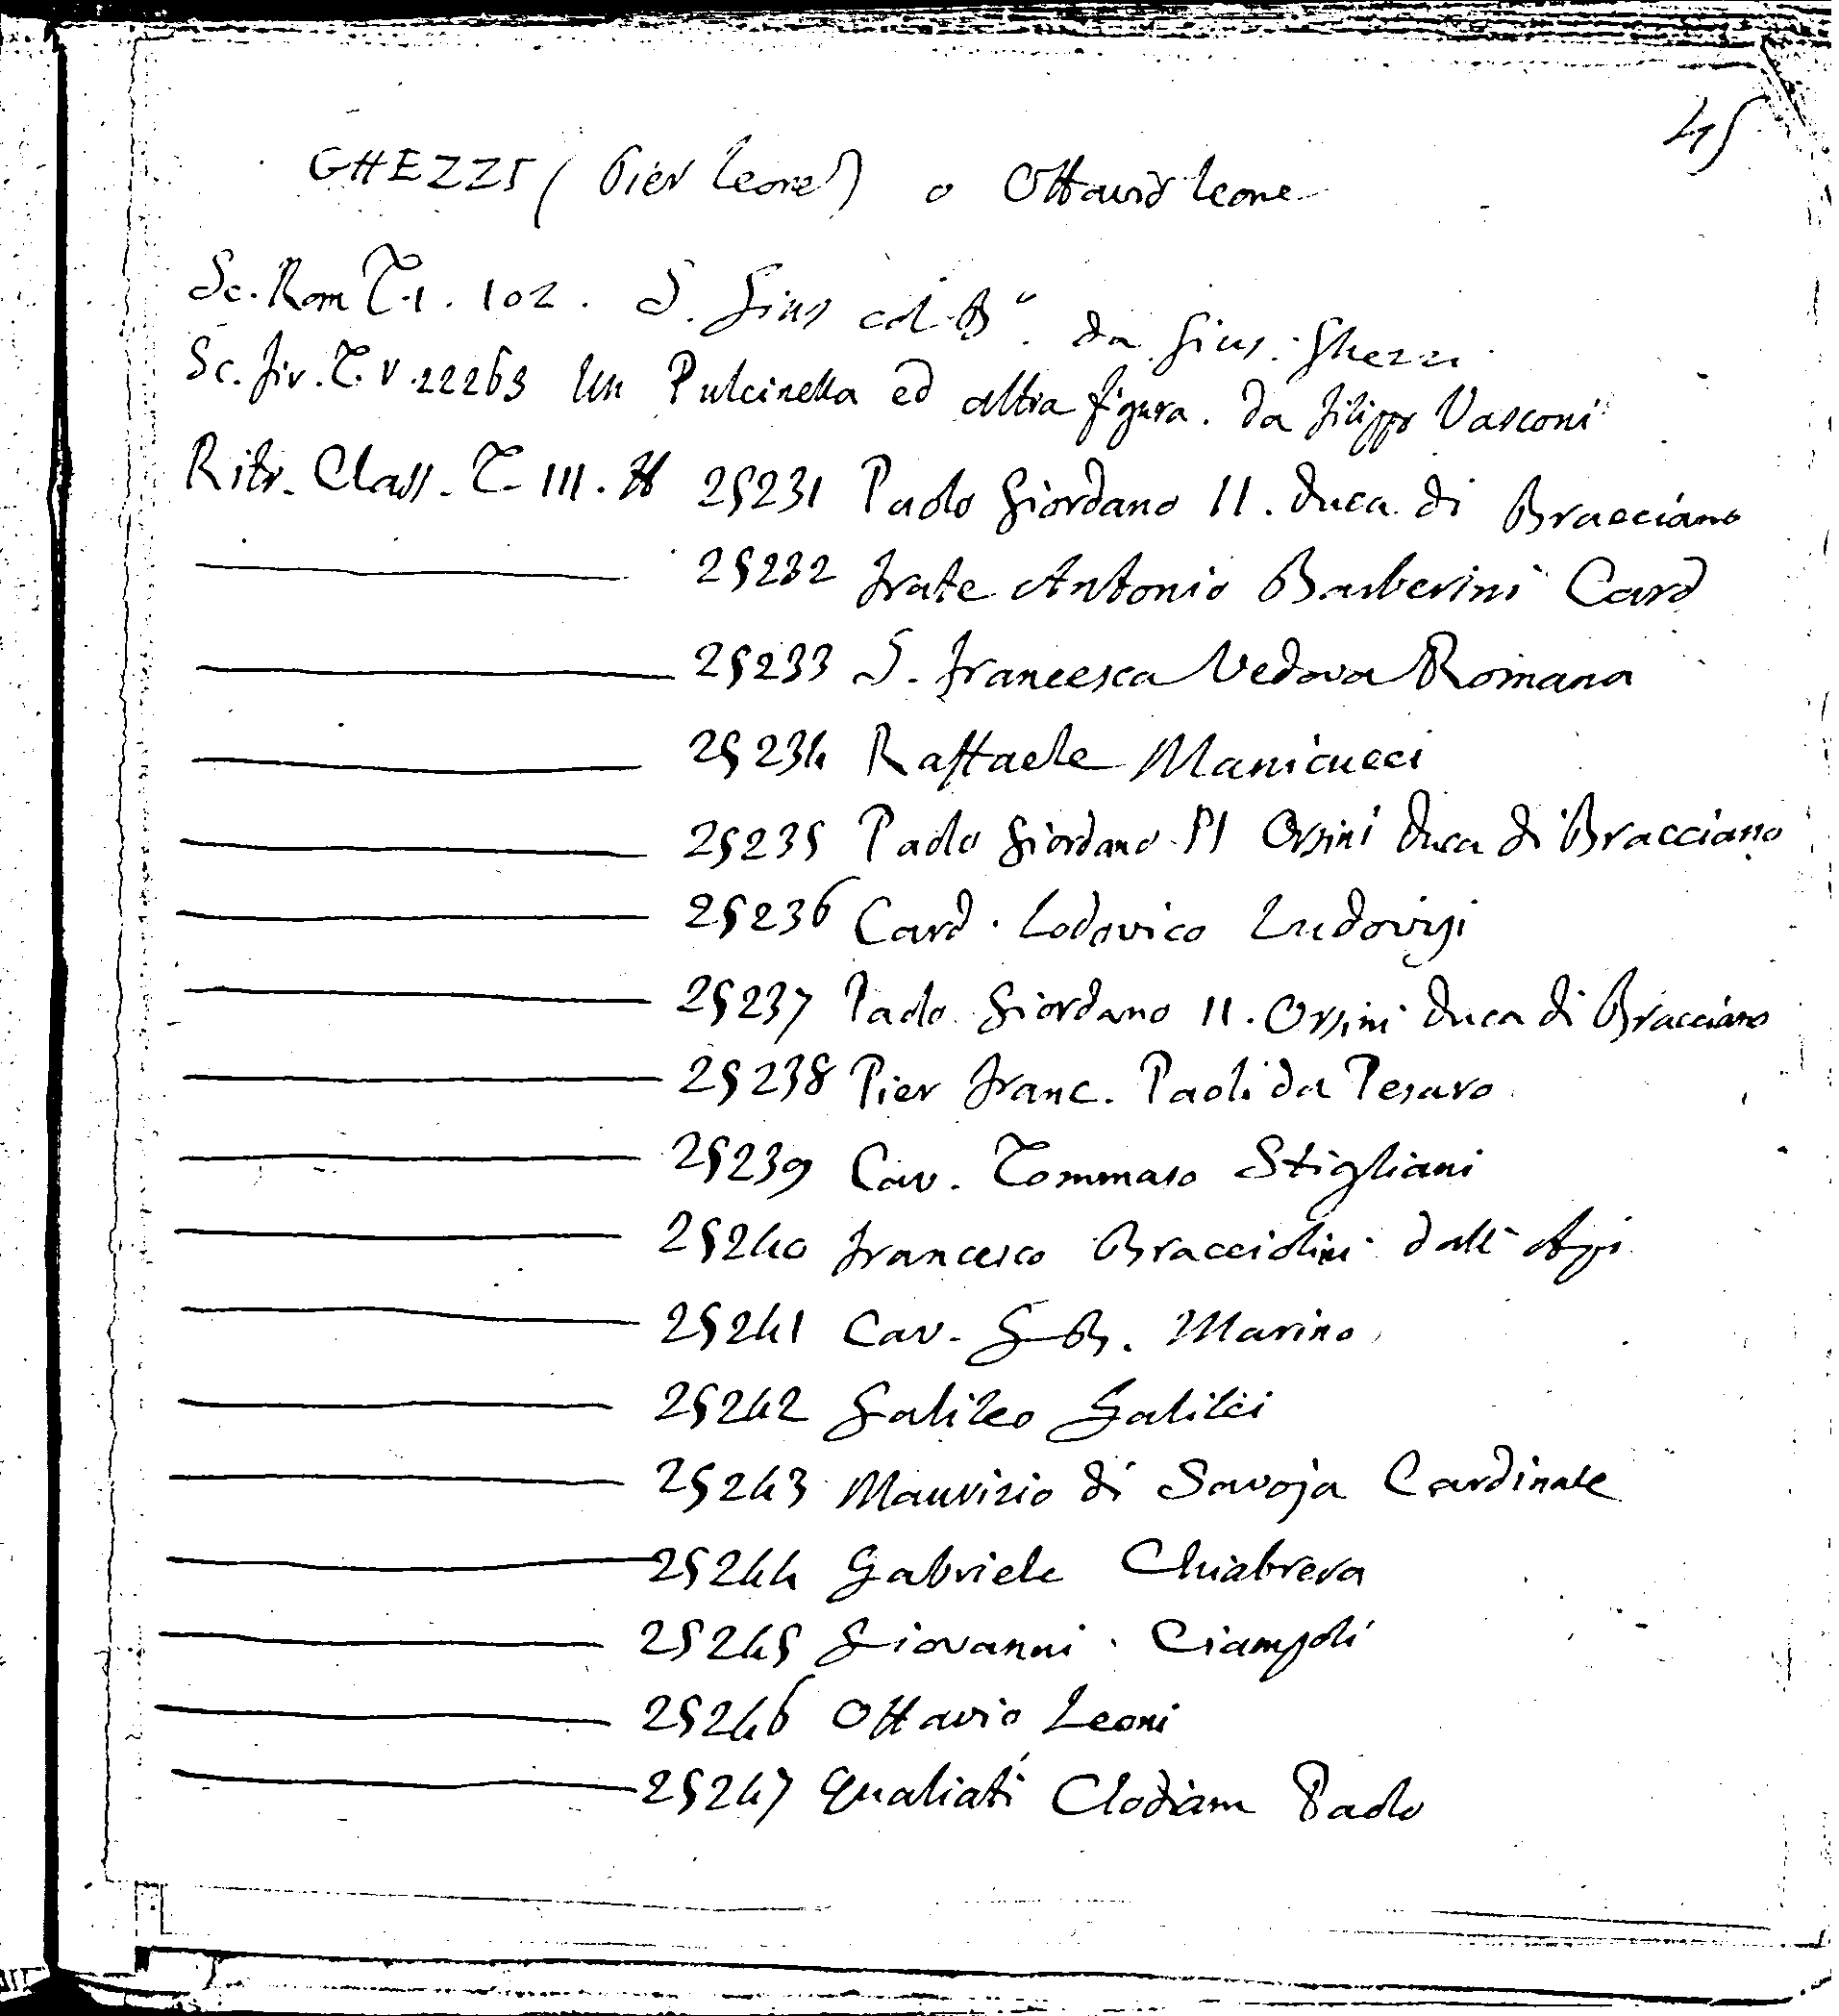 45
GHEZZI (Pier Leone) o Ottavio Leone
Sc. Rom T. 1. 102. S. Gius col Bº. da Gius. Ghezzi
Sc. fiv. T. V. 22263 Un Pulcinella ed altra figura. da filippo Vasconi
Ritr. Class. T. III. H 25231 Paolo Giordano II. Duca di Bracciano
25232 frate Antonio Barberini Card
25233 S. francesca Vedova Romana
25234 Raffaele Manicucci
25235 Paolo Giordano II Orsini Duca di Bracciano
25236 Card. Lodovico Ludovisi
25237 Paolo Giordano II. Orsini Duca di Bracciano
25238 Pier franc. Paoli da Pesaro
25239 Cav. Tommaso Stigliani
25240 francesco Bracciolini dall' Api
25241 Cav. G B. Marino
25242 Galileo Galilei
25243 Maurizio di Savoja Cardinale
25244 Gabriele Chiabrera
25245 Giovanni Ciampoli
25246 Ottavio Leoni
25247 Qualiati Clodiam Paolo